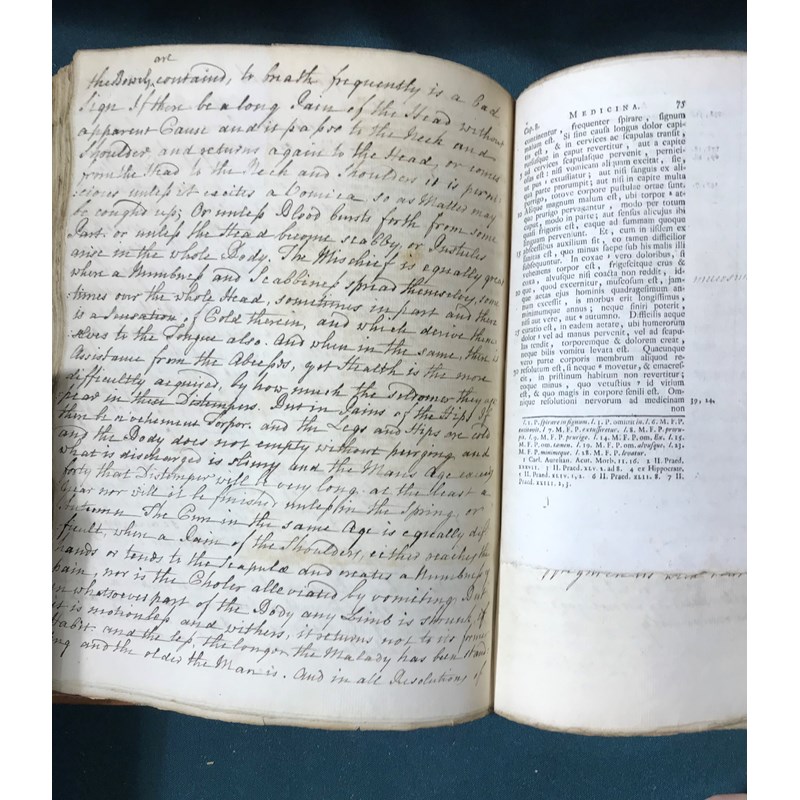 are
the Bowels containd, to breath frequently is a bad
Sign If there be a long Pain of the Head without
apparent Cause and it passes to the Neck and
Shoulder and returns again to the Head, or comes
from the Head to the Neck and Shoulders it is perni-
:cious unless it excites a Vomica so as Matter may
be coughd up; Or unless Blood bursts forth from some
Part. or unless the Head become scabby, or Pustules
arise in the whole Body. The Mischief is equally great
when a Numbness and Scabbiness spread themselves, some
:times our the whole Head, sometimes in part and there
is a Sensation of Cold therein, and which derive them
:selves to the Tongue also. And when in the same there is
Assistance from the Abcesses, yet Health is the more
difficultly acquired, by how much the Seldomer they ap
:pear in these Distempers. But in Pains of the Hips If
there be a vehement Torpor. and the Legs and Hips are cold
and the Body does not empty without purging, and
what is discharged is slimy and the Mans Age exceeds
forty that Distemper will be very long. at the least a
Year nor will it be finished unless in the Spring, or
Autumn The Cure in the same Age is equally dif
:ficult, when a Pain of the Shoulders, either reaches the
hands or tends to the Scapulæ and creates a Numbness &
pain, nor is the Choler alleviated by vomiting. But
in whatsoever part of the Body any Limb is shrunk, If
it is motionless and withers, it returns not to its former
Habit. and the less, the longer the Malady has been stand
ing and the older the Man is. And in all Resolutions of
Cap. 8. MEDICINA. 75
continentur, frequenter spirare, signum
malum est. Si sine causa longus dolor capi-
tis est, & in cervices ac scapulas transit,
rursusque in caput revertitur, aut a capite
ad cervices scapulasque pervenit, pernici-
osus est: nisi vomicam aliquam excitat, sic,
ut pus extussiatur; aut nisi sanguis ex ali-
qua parte prorumpit; aut nisi in capite multa
porrigo, totove corpore pustulae ortae sunt.
Aeque magnum malum est, ubi torpor at-
que prurigo pervagantur, modo per totum
caput, modo in parte; aut sensus alicujus ibi
quasi frigoris est, eaque ad summam quoque
linguam perveniunt. Et, cum in iisdem ex
abscessibus auxilium sit, eo tamen difficilior
sanitas est, quo minus saepe sub his malis illi
subsequuntur. In coxae vero doloribus, si
vehemens torpor est, frigescitque crus &
coxa, alvus nisi coacta non reddit, id-
que, quod excernitur, mucosum est, jam-
que aetas ejus hominis quadragesimum an-
num excessit, is morbus erit longissimus,
minimumque annuus, neque finiri poterit,
nisi aut vere, aut autumno. Difficilis aeque
curatio est, in eadem aetate, ubi humerorum
dolor vel ad manus pervenit, vel ad scapu-
las tendit, torporemque & dolorem creat,
neque bilis vomitu levata est. Quacunque
vero parte corporis membrum aliquod re-
solutum est, si neque movetur, & emacres-
cit, in pristinum habitum non revertitur;
eoque minus, quo vetustius id vitium
est, & quo magis in corpore senili est. Om-
nique resolutioni nervorum ad medicinam 39, 24.
non